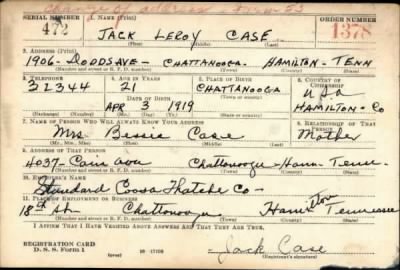 change of address Form 53
SERIAL NUMBER 1. NAME (Print) ORDER NUMBER
472 JACK LEROY CASE 1378
(First) (Middle) (Last)
2. ADDRESS (Print)
1906 - DODDS AVE - CHATTANOOGA - HAMILTON - TENN
(Number and street or R. F. D. number) (Town) (County) (State)
3. TELEPHONE 4. AGE IN YEARS 5. PLACE OF BIRTH 6. COUNTRY OF CITIZENSHIP
32344 21 CHATTANOOGA U.S.A
DATE OF BIRTH (Town or county)
APR 3 1919 HAMILTON - CO
(Exchange) (Number) (Mo.) (Day) (Yr.) (State or country)
7. NAME OF PERSON WHO WILL ALWAYS KNOW YOUR ADDRESS 8. RELATIONSHIP OF THAT PERSON
Mrs Bessie Case Mother
(Mr., Mrs., Miss) (First) (Middle) (Last)
9. ADDRESS OF THAT PERSON
4037 - Cain ave Chattanooga - Ham - Tenn -
(Number and street or R. F. D. number) (Town) (County) (State)
10. EMPLOYER'S NAME
Standard Coosa Thatche Co -
11. PLACE OF EMPLOYMENT OR BUSINESS
18th St - Chattanooga Hamilton Tennessee
(Number and street or R. F. D. number) (Town) (County) (State)
I AFFIRM THAT I HAVE VERIFIED ABOVE ANSWERS AND THAT THEY ARE TRUE.
REGISTRATION CARD
D. S. S. Form 1 (over) Jack Case